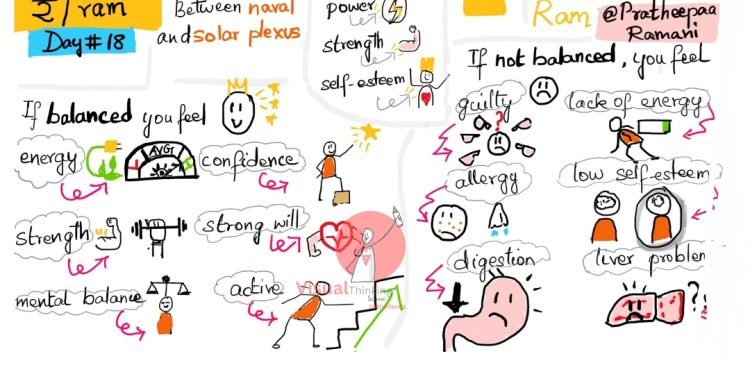 रं/ram
Day#18
Between naval
and solar plexus
power
strength
self-esteem
Ram @Pratheepaa
Ramani
If balanced you feel
energy
AVG1
confidence
strength
strong will
mental balance
active
If not balanced, you feel
guilty
?
lack of energy
allergy
low self-esteem
digestion
liver problem
??
Visual Thinking
School